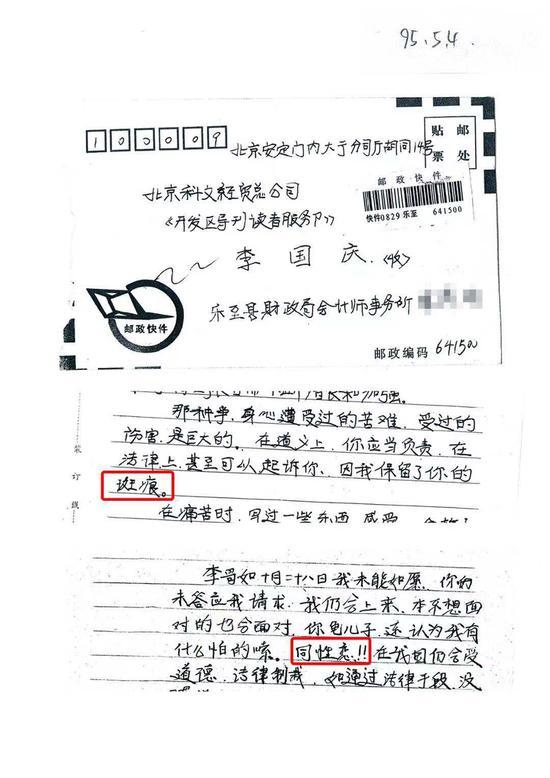 95.5.4.
100009
北京安定门内大于分司厅胡同14号
贴 邮
票 处
邮 政 快 件
快件0829 乐至 641500
北京科文经贸总公司
《开发区导刊读者服务部》
李 国 庆.(收)
邮政快件
乐至县财政局会计师事务所
邮政编码 641500
那种事,身心遭受过的苦难,受过的
伤害,是巨大的。在道义上,你应当负责,在
法律上,甚至可以起诉你、因我保留了你的
斑痕。
装 订 线
在痛苦时,写过一些东西
十月二十八日我未能如愿,你的
未答应我请求,我仍会上来,本不想面
对的也会面对,你龟儿子,还认为我有
什么怕的嗦。同性恋!!在我国仍会受
道德、法律制裁,如通过法律手段,没